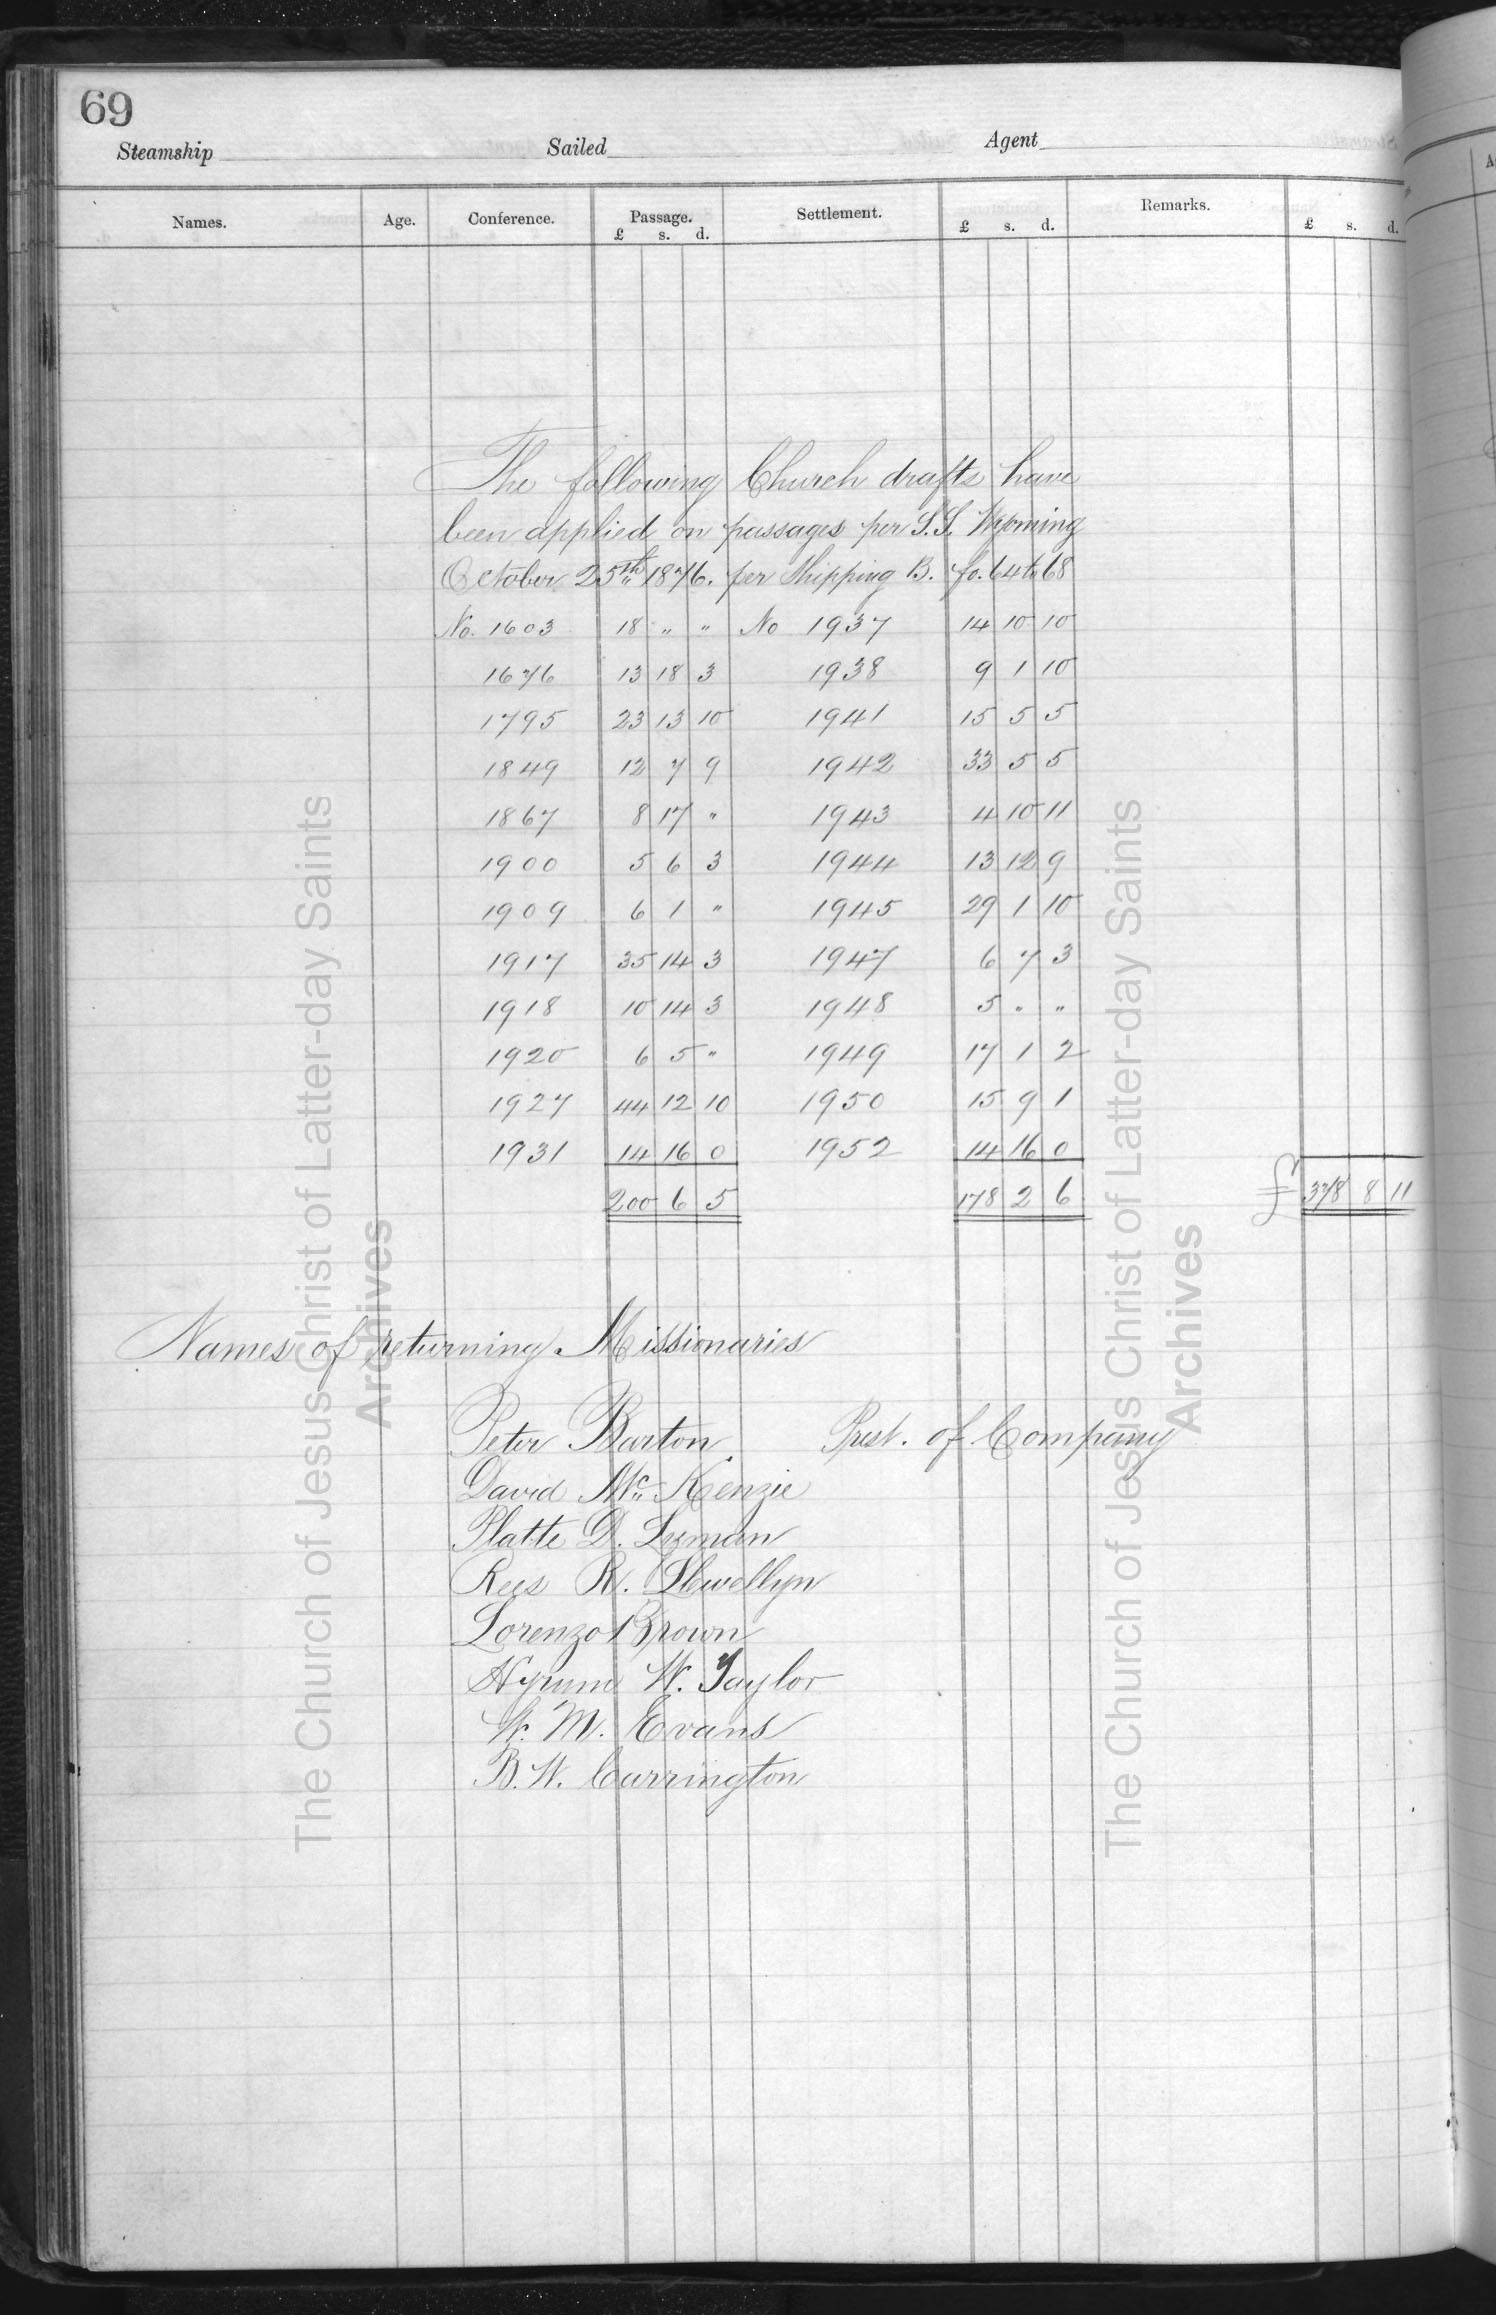 69
Steamship Sailed Agent
Names. Age. Conference. Passage. Settlement. Remarks.
£ s. d. £ s. d. £ s. d.
The following Church drafts have
been applied on passages per S.S. Wyoming
October 25th 1876. per Shipping B. fo. 64 to 68
No. 1603 18 " " No 1937 14 10 10
1676 13 18 3 1938 9 1 10
1795 23 13 10 1941 15 5 5
1849 12 7 9 1942 33 5 5
1867 8 17 " 1943 4 10 11
1900 5 6 3 1944 13 12 9
1909 6 1 " 1945 29 1 10
1917 35 14 3 1947 6 7 3
1918 10 14 3 1948 5 " "
1920 6 5 " 1949 17 1 2
1927 44 12 10 1950 15 9 1
1931 14 16 0 1952 14 16 0
200 6 5 178 2 6 £ 378 8 11
Names of returning Missionaries
Peter Barton Prest. of Company
David Mc Kenzie
Platte D. Lyman
Rees R. Llewellyn
Lorenzo Brown
Hyrum W. Taylor
W. M. Evans
B. W. Carrington
The Church of Jesus Christ of Latter-day Saints
Archives
The Church of Jesus Christ of Latter-day Saints
Archives